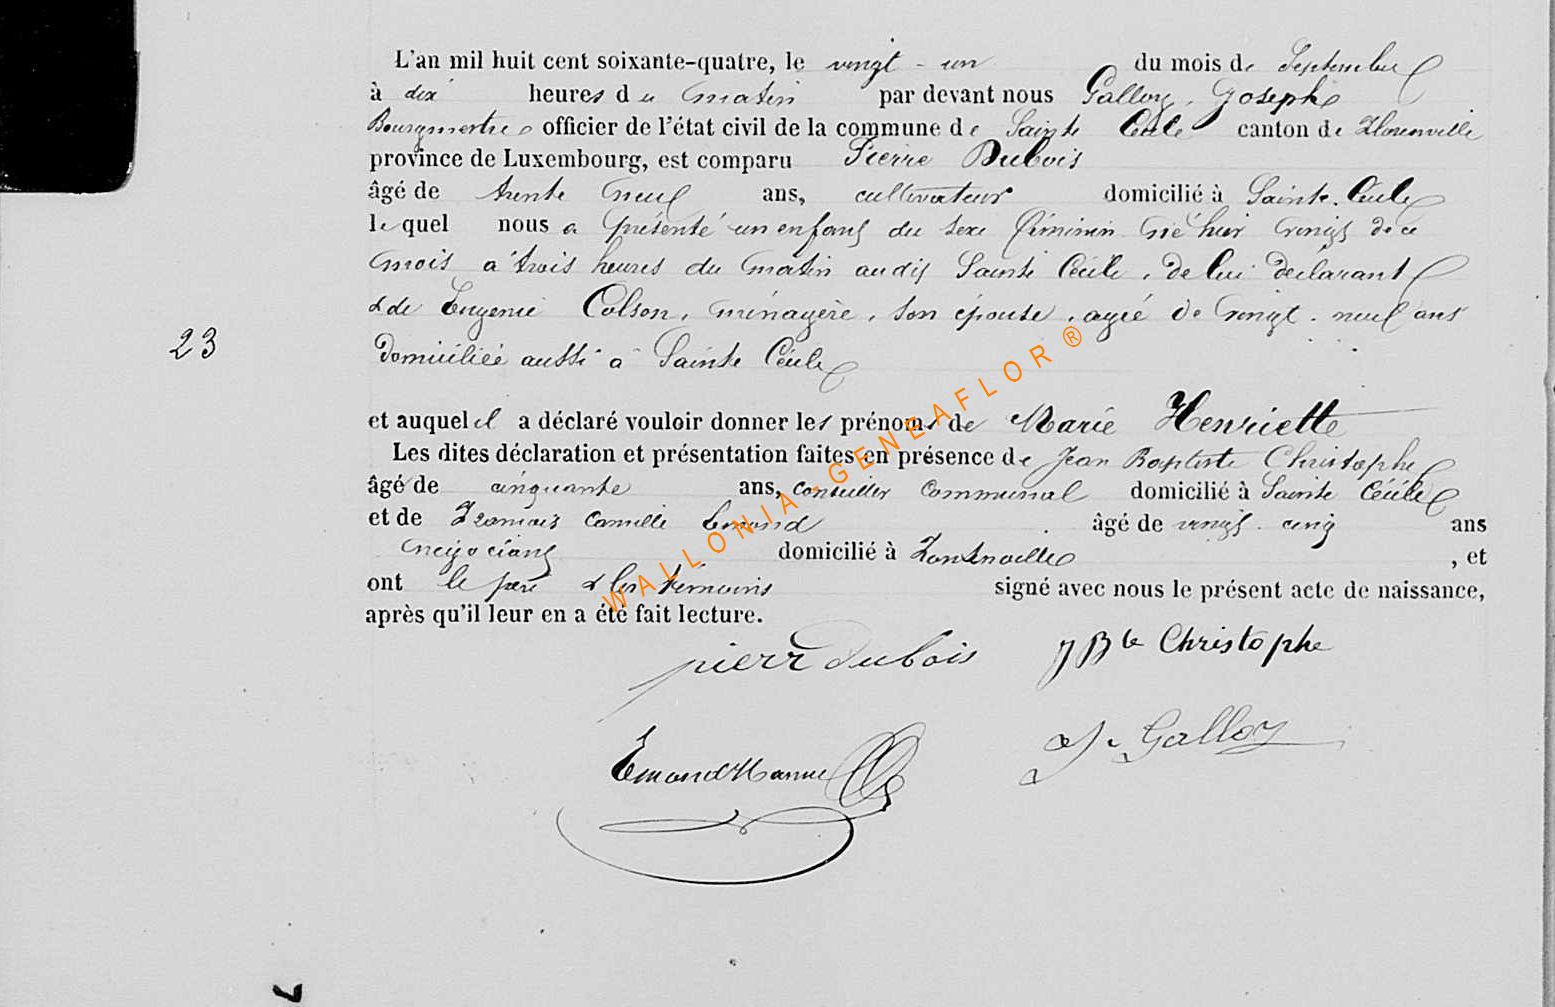 L'an mil huit cent soixante-quatre, le vingt - un du mois de Septembre
à dix heures du matin par devant nous Galloy, Joseph
Bourgmestre officier de l'état civil de la commune de Sainte Cécile canton de Florenville
province de Luxembourg, est comparu Pierre Dubois
âgé de trente neuf ans, cultivateur domicilié à Sainte-Cécile
le quel nous a présenté un enfant du sexe féminin né hier vingt de ce
mois à trois heures du matin audit Sainte Cécile, de lui déclarant
& de Eugenie Colson, ménagère, son épouse, agée de vingt-neuf ans
23
domiciliée aussi à Sainte Cécile
et auquel il a déclaré vouloir donner les prénoms de Marie Henriette
Les dites déclaration et présentation faites en présence de Jean Baptiste Christophe
âgé de cinquante ans, conseiller communal domicilié à Sainte Cécile
et de François Camille Emond âgé de vingt-cinq ans
négociant domicilié à Fontenoille, et
ont le père & les témoins signé avec nous le présent acte de naissance,
après qu'il leur en a été fait lecture.
WALLONIA-GENEAFLOR ®
pierr dubois J Bte Christophe
J. Galloy
Emond
7